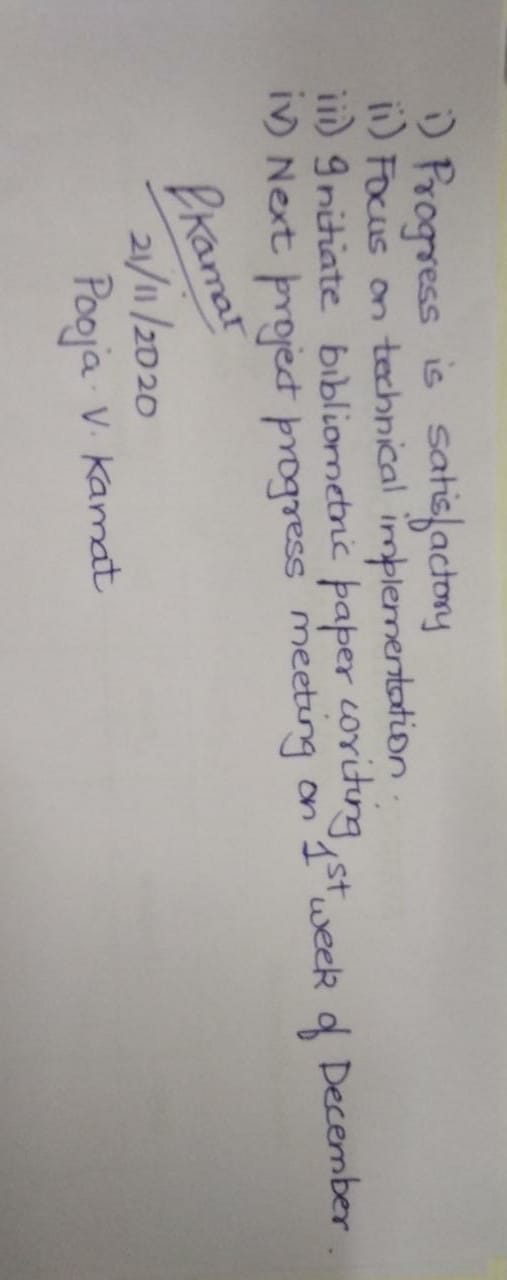 i) Progress is satisfactory
ii) Focus on technical implementation.
iii) Initiate bibliometric paper writing
iv) Next project progress meeting on 1st week of December.
PKamat
21/11/2020
Pooja V. Kamat